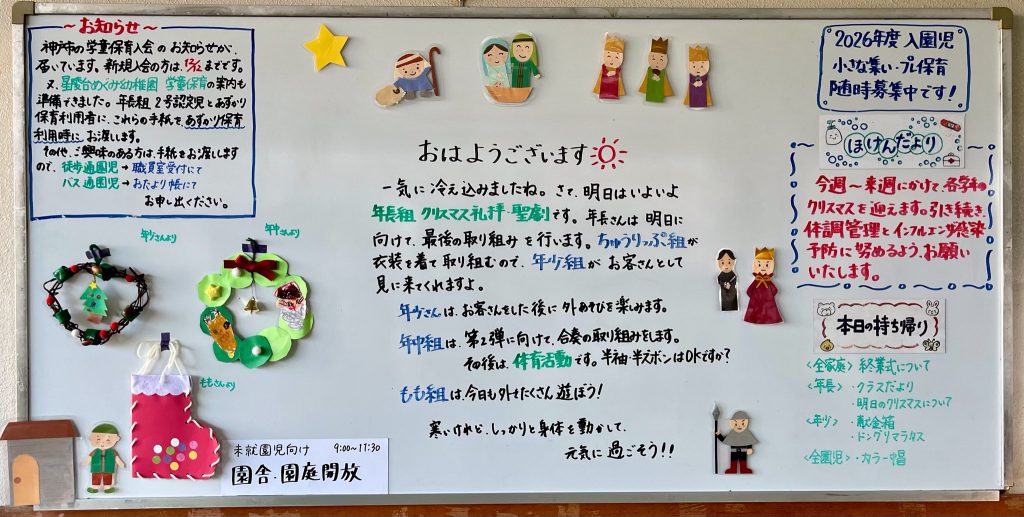 ～お知らせ～
神戸市の学童保育入会のお知らせが、
届いています。新規入会の方は、12/12までです。
又、星陵台めぐみ幼稚園 学童保育の案内も
準備できました。年長組2号認定児とあずかり
保育利用者に、これらの手紙を、あずかり保育
利用時に、お渡します。
その他、ご興味のある方は、手紙をお渡します
ので、徒歩通園児→職員室受付にて
バス通園児→おたより帳にて
お申し出ください。
年少さんより
年中さんより
ももさんより
未就園児向け 9:00～11:30
園舎・園庭開放
おはようございます
一気に冷え込みましたね。さて、明日はいよいよ
年長組 クリスマス礼拝・聖劇です。年長さんは明日に
向けて、最後の取り組みを行います。ちゅうりっぷ組が
衣装を着て取り組むので、年少組がお客さんとして
見に来てくれますよ。
年少さんは、お客さんをした後に外あそびを楽しみます。
年中組は、第2弾に向けて、合奏の取り組みをします。
その後は、体育活動です。半袖・半ズボンはOKですか？
もも組は、今日も外でたくさん遊ぼう！
寒いけれど、しっかりと身体を動かして、
元気に過ごそう！！
2026年度 入園児
小さな集い・プレ保育
随時募集中です！
ほけんだより
今週～来週にかけて、各学年の
クリスマスを迎えます。引き続き、
体調管理とインフルエンザ感染
予防に努めるよう、お願い
いたします。
本日の持ち帰り
〈全家庭〉終業式について
〈年長〉・クラスだより
・明日のクリスマスについて
〈年少〉・献金箱
・ドングリマラカス
〈全園児〉・カラー帽